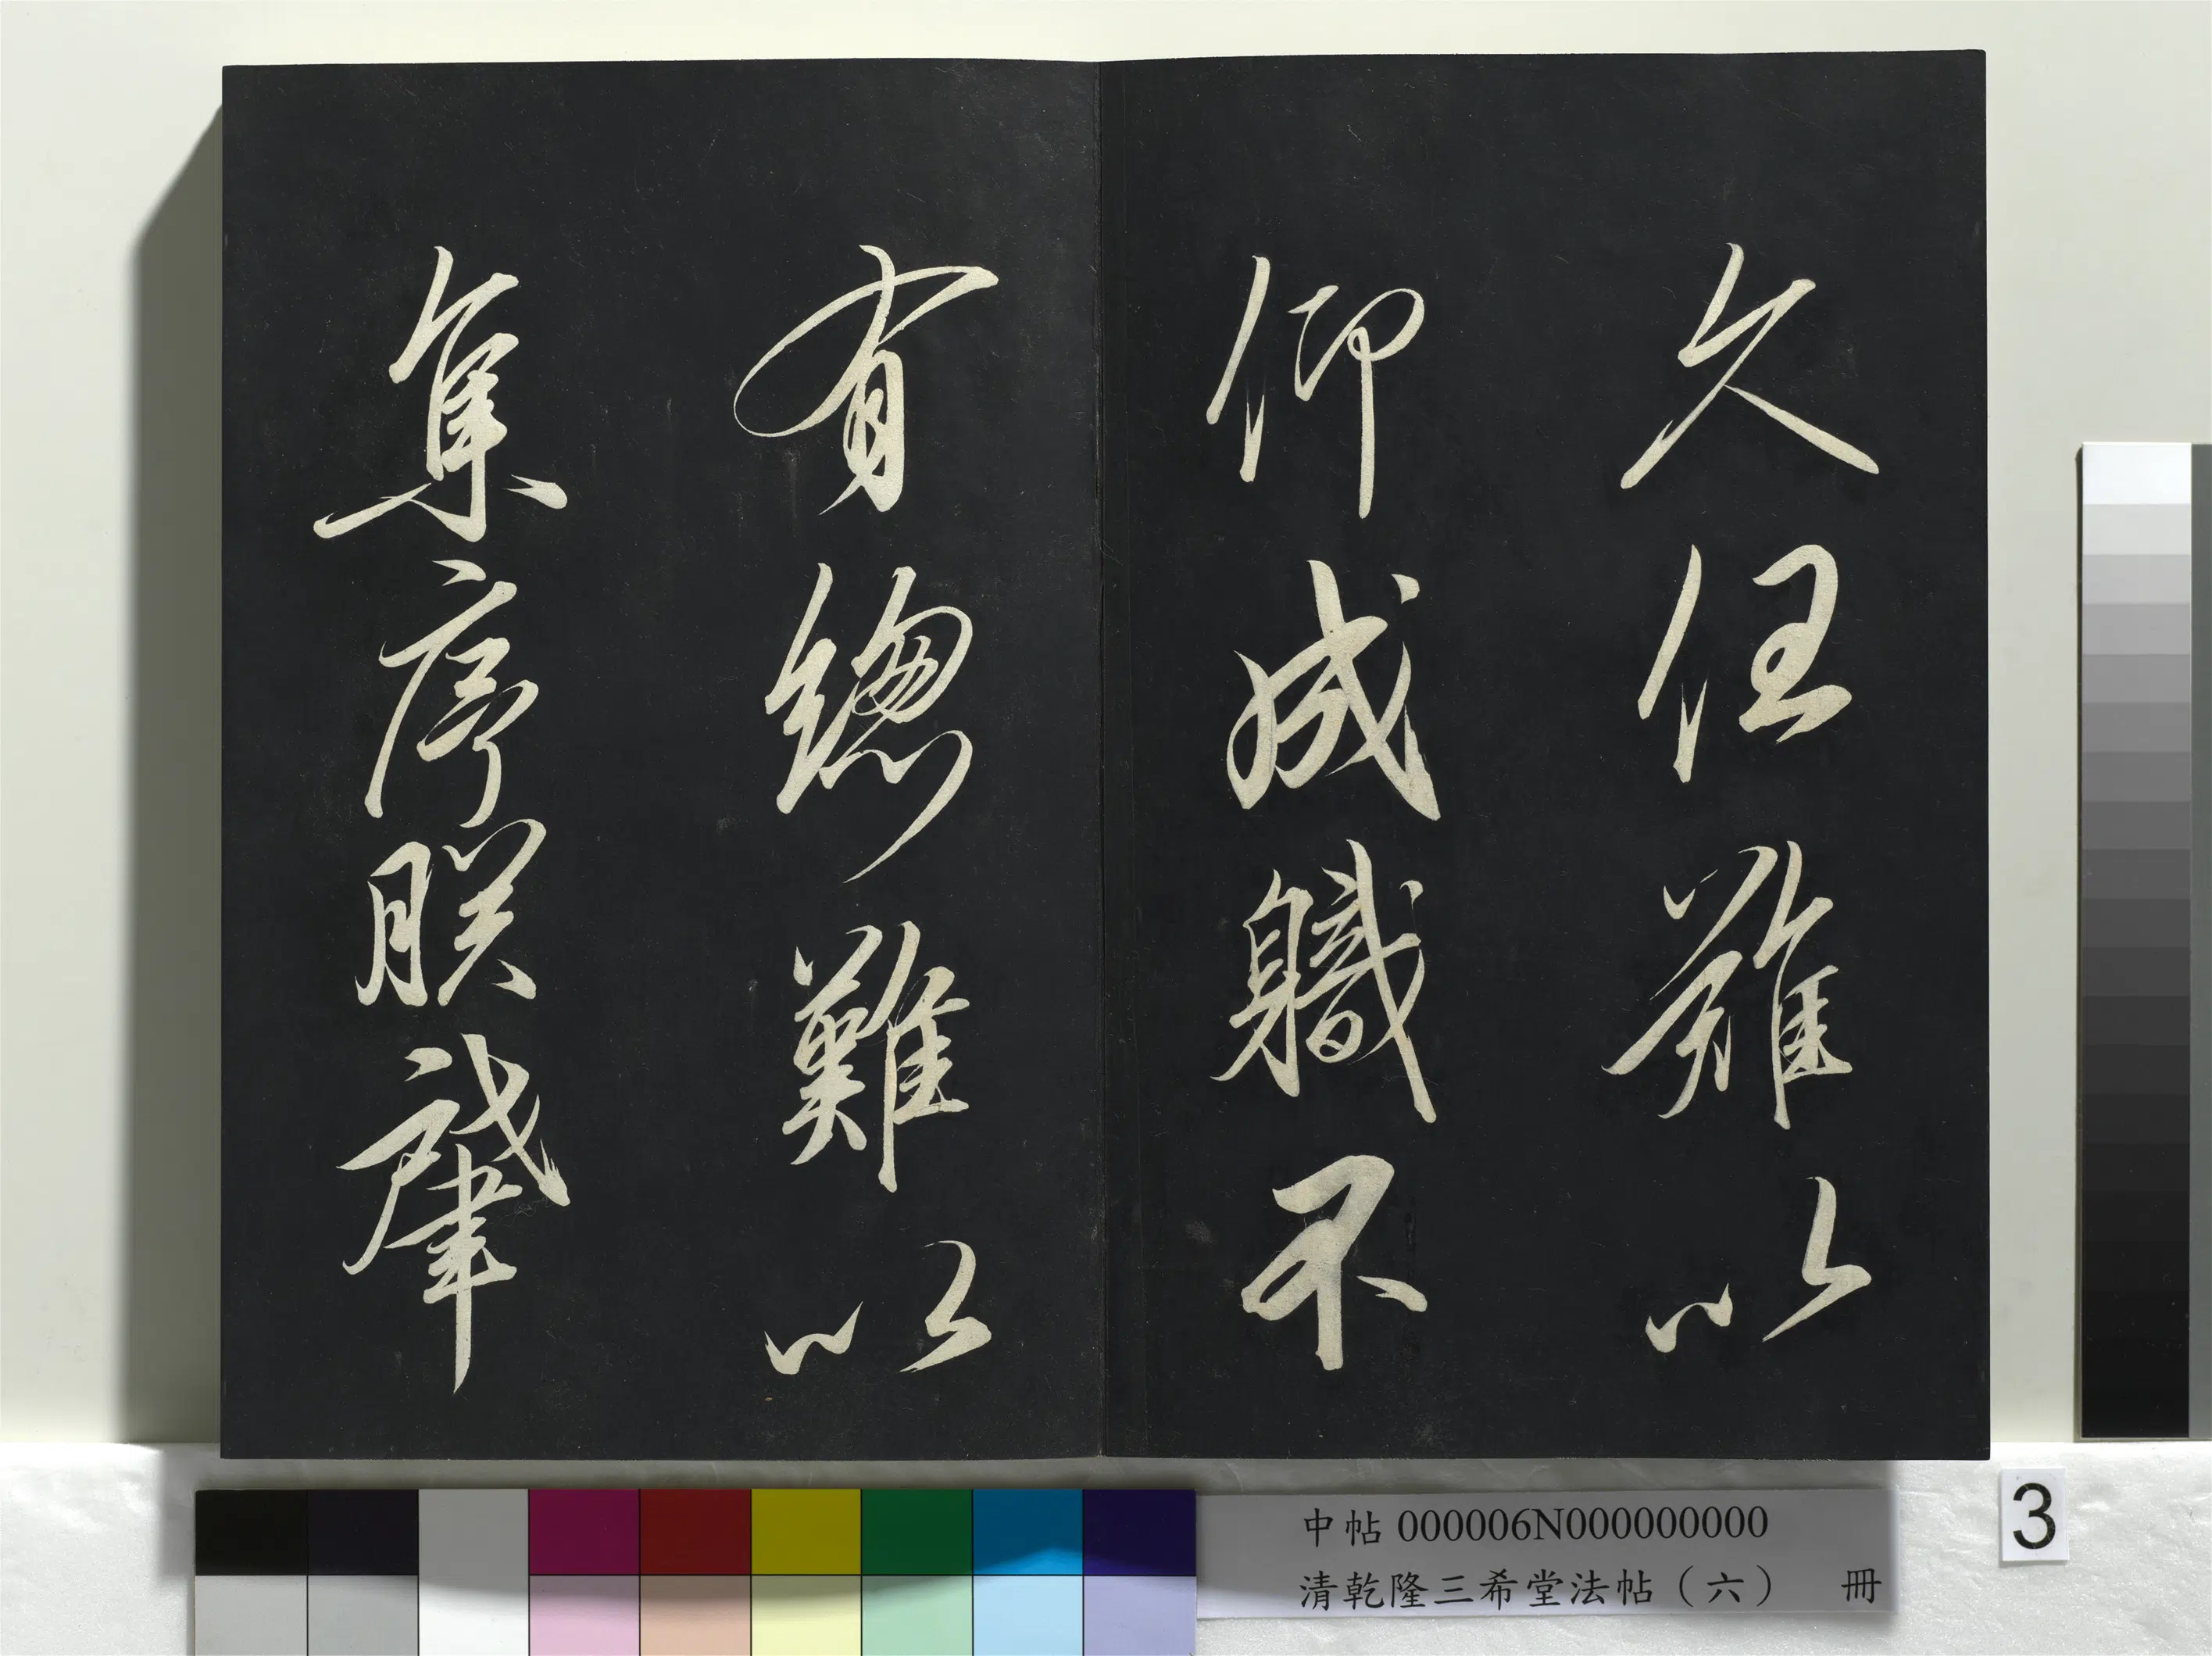 久任難以
仰成職不
有總難以
集序朕肇
中帖 000006N000000000
清乾隆三希堂法帖（六） 冊
3